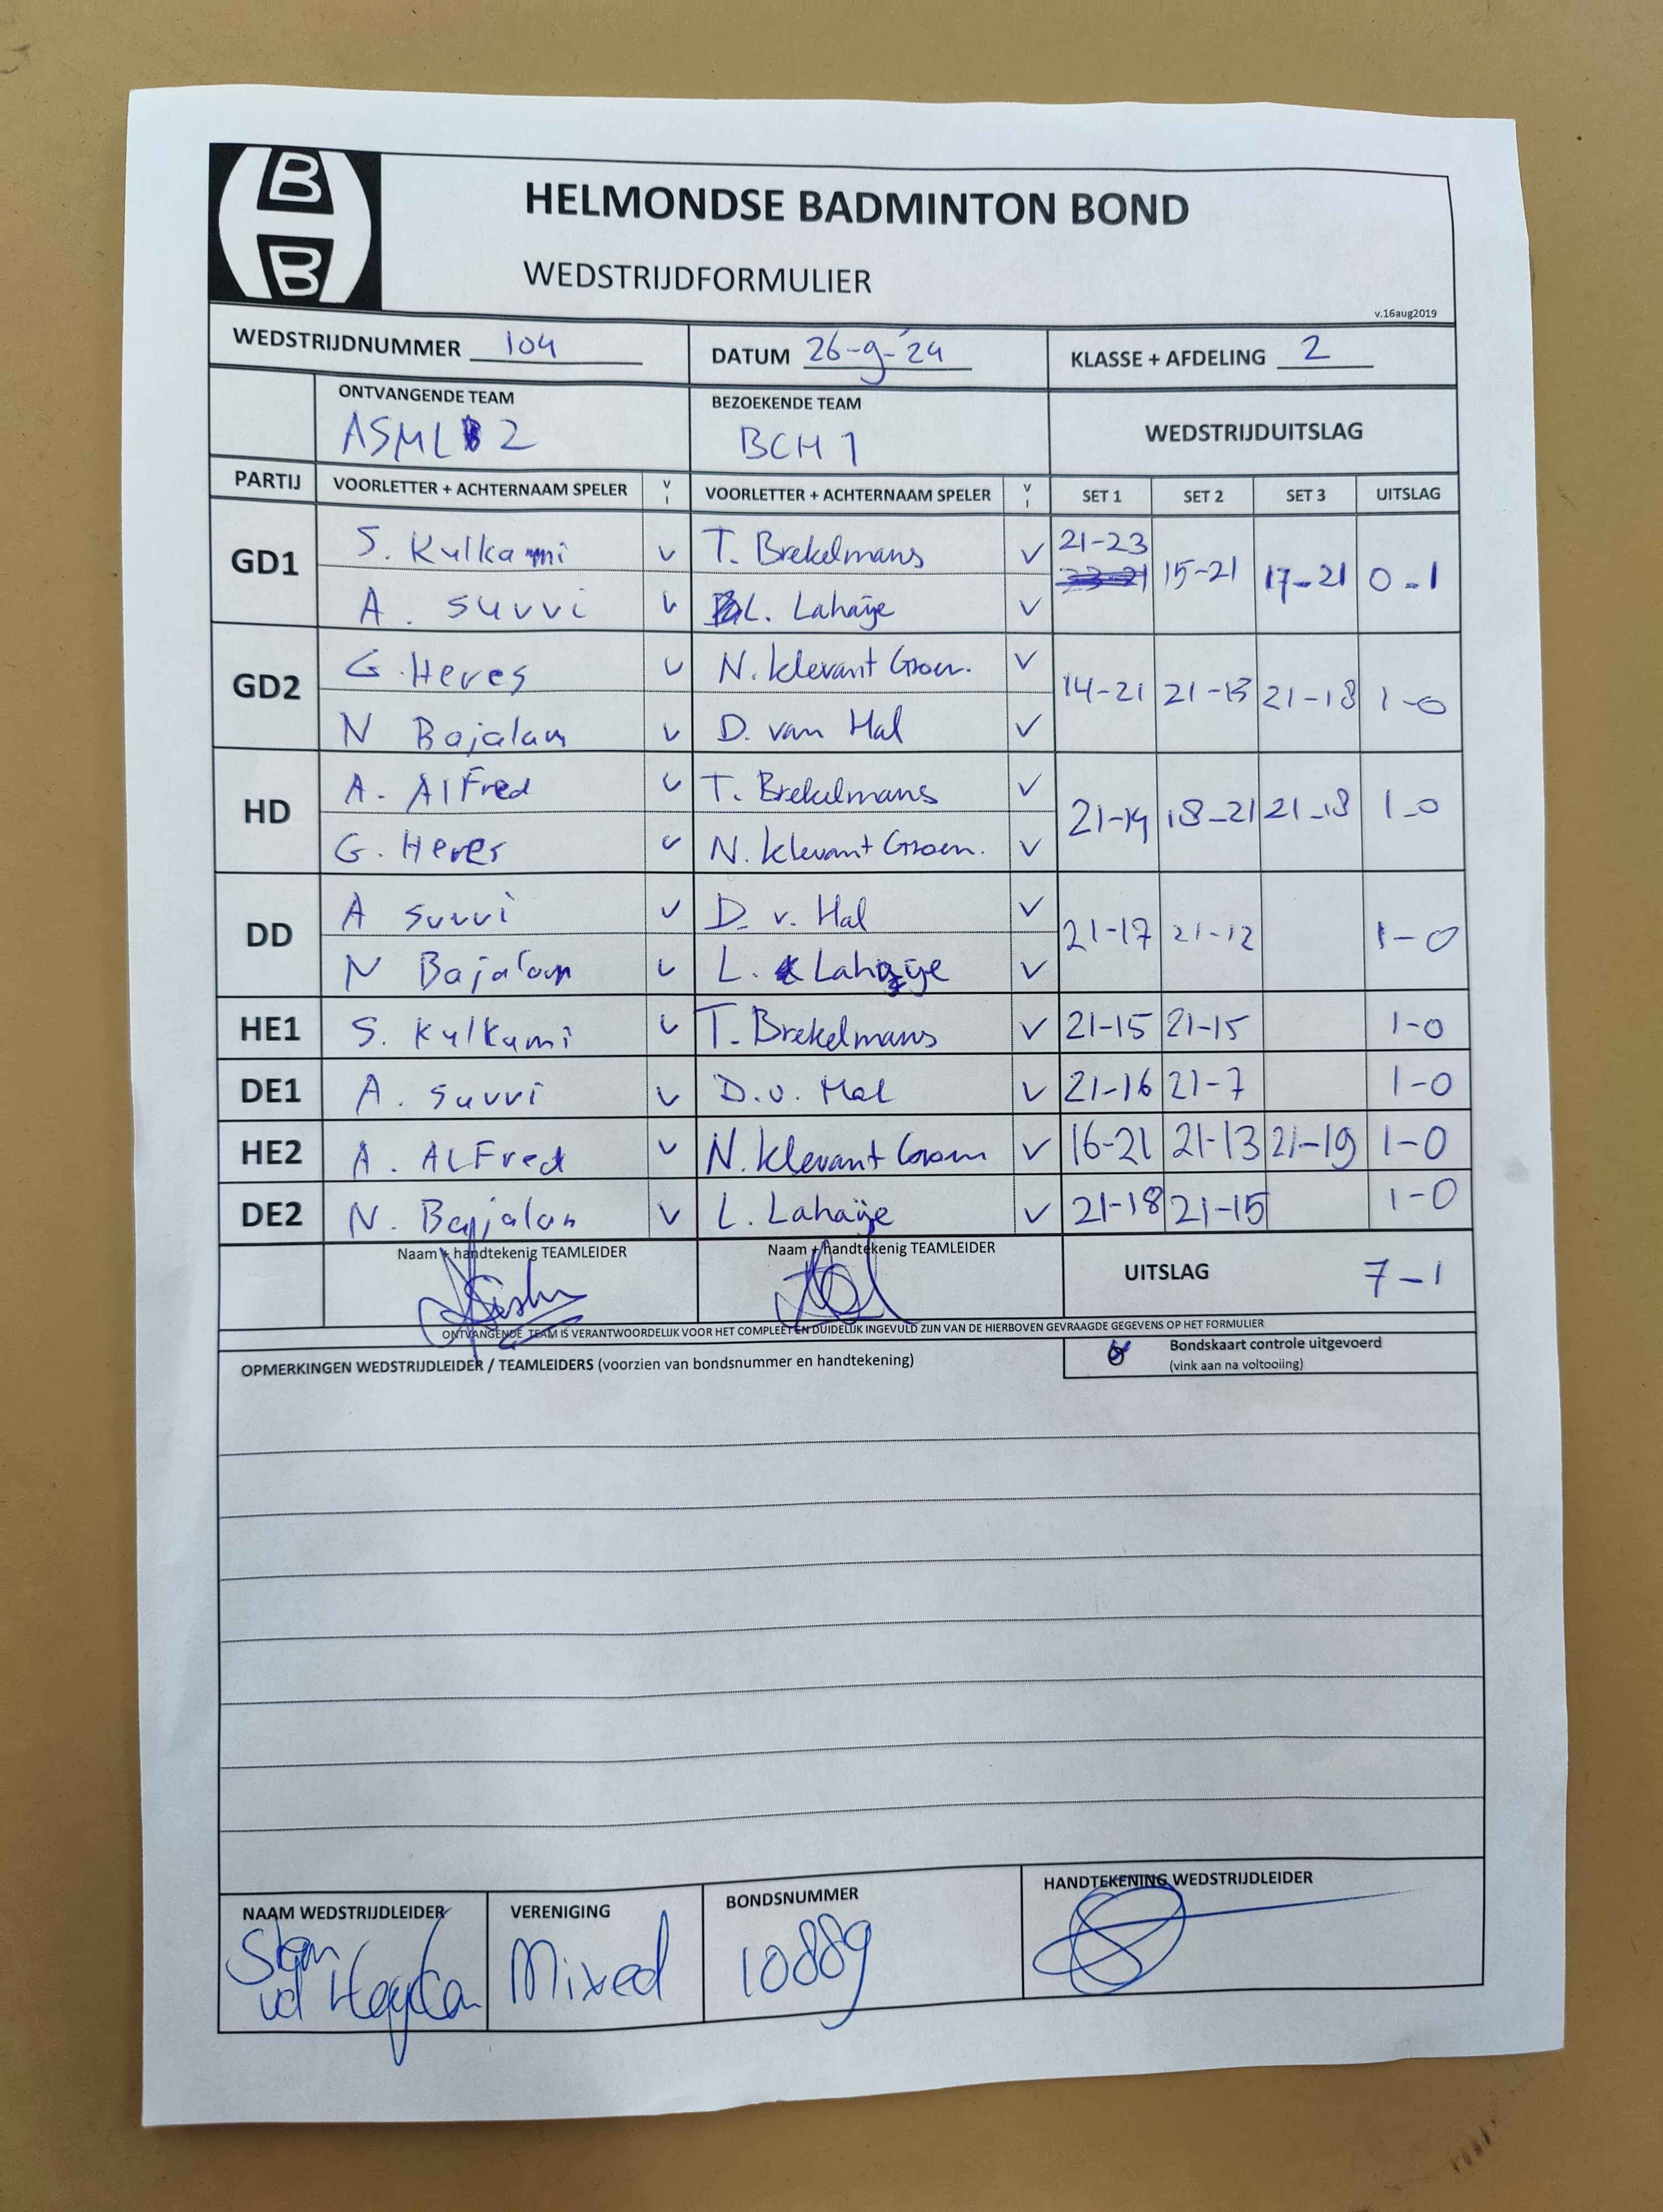 B
B
HELMONDSE BADMINTON BOND
WEDSTRIJDFORMULIER
v.16aug2019
WEDSTRIJDNUMMER 104 DATUM 26-9-'24 KLASSE + AFDELING 2
ONTVANGENDE TEAM BEZOEKENDE TEAM WEDSTRIJDUITSLAG
ASML 2 BCH 1
PARTIJ VOORLETTER + ACHTERNAAM SPELER V I VOORLETTER + ACHTERNAAM SPELER V I SET 1 SET 2 SET 3 UITSLAG
GD1 S. Kulkarni v T. Brekelmans v 21-23 15-21 17-21 0-1
A. Suvvi v L. Lahaije v
GD2 G. Heres v N. Klevant Groen. v 14-21 21-13 21-18 1-0
N Bajalan v D. van Hal v
HD A. Alfred v T. Brekelmans v 21-14 18-21 21-18 1-0
G. Heres v N. Klevant Groen. v
DD A Suvvi v D. v. Hal v 21-17 21-12 1-0
N Bajalan v L. Lahaije v
HE1 S. Kulkarni v T. Brekelmans v 21-15 21-15 1-0
DE1 A. Suvvi v D.v. Hal v 21-16 21-7 1-0
HE2 A. ALFred v N. Klevant Groen v 16-21 21-13 21-19 1-0
DE2 N. Bajalan v L. Lahaije v 21-18 21-15 1-0
Naam + handtekenig TEAMLEIDER Naam + handtekenig TEAMLEIDER UITSLAG 7-1
ONTVANGENDE TEAM IS VERANTWOORDELIJK VOOR HET COMPLEET EN DUIDELIJK INGEVULD ZIJN VAN DE HIERBOVEN GEVRAAGDE GEGEVENS OP HET FORMULIER
OPMERKINGEN WEDSTRIJDLEIDER / TEAMLEIDERS (voorzien van bondsnummer en handtekening) Bondskaart controle uitgevoerd
(vink aan na voltooiing)
NAAM WEDSTRIJDLEIDER VERENIGING BONDSNUMMER HANDTEKENING WEDSTRIJDLEIDER
vd Mixed 10889